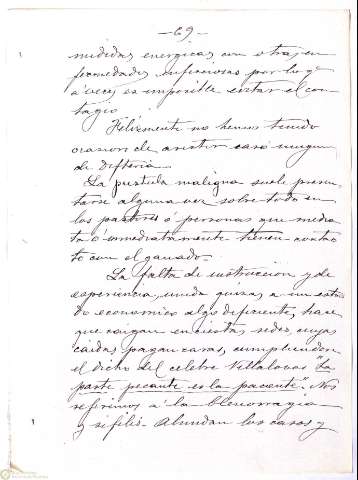 —69—
medidas energicas con otras en
fermedades infecciosas por lo q.e
á veces es imposible evitar el con
tagio.
Felizmente no hemos tenido
ocasion de asistir caso ninguno
de difteria.
La pustula maligna suele presen
tarse alguna vez sobre todo en
los pastores ó personas que media
ta ó inmediatamente tienen contac
to con el ganado.
La falta de instruccion y de
experiencia, unida quizas a un esta
do economico algo deficiente, hace
que caigan en ciertas redes, cuyas
caidas pagan caras, cumpliendose
el dicho del celebre Villalobos "La
parte pecante es la paciente". Nos
referimos á la blenorragia
y sifilis. Abundan los casos y